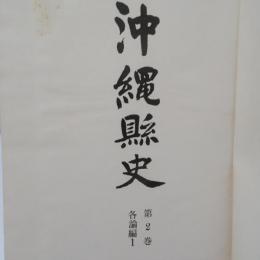 沖縄縣史
第2巻
各論編1